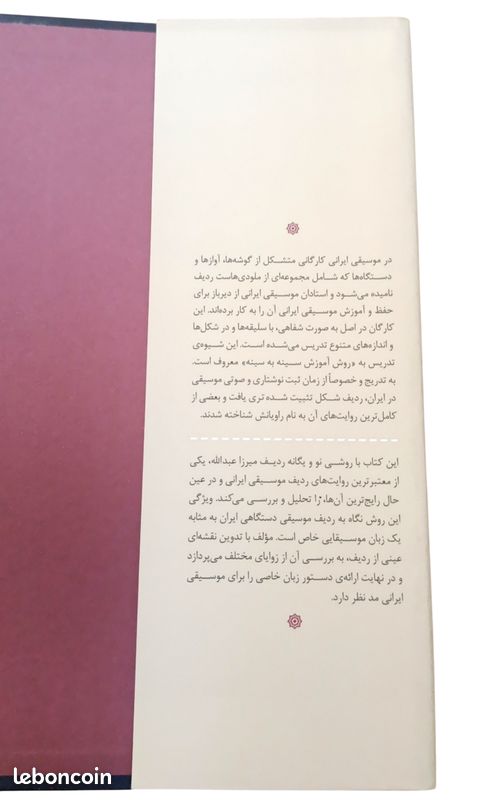 در موسیقی ایرانی کارگانی متشکل از گوشه‌ها، آوازها و
دستگاه‌ها که شامل مجموعه‌ای از ملودی‌هاست ردیف
نامیده می‌شود و استادان موسیقی ایرانی از دیرباز برای
حفظ و آموزش موسیقی ایرانی آن را به کار برده‌اند. این
کارگان در اصل به صورت شفاهی، با سلیقه‌ها و در شکل‌ها
و اندازه‌های متنوع تدریس می‌شده است. این شیوه‌ی
تدریس به «روش آموزش سینه به سینه» معروف است.
به تدریج و خصوصاً از زمان ثبت نوشتاری و صوتی موسیقی
در ایران، ردیف شکل تثبیت شده تری یافت و بعضی از
کامل‌ترین روایت‌های آن به نام راویانش شناخته شدند.
این کتاب با روشی نو و یگانه ردیف میرزا عبدالله، یکی
از معتبرترین روایت‌های ردیف موسیقی ایرانی و در عین
حال رایج‌ترین آن‌ها، را تحلیل و بررسی می‌کند. ویژگی
این روش نگاه به ردیف موسیقی دستگاهی ایران به مثابه
یک زبان موسیقایی خاص است. مؤلف با تدوین نقشه‌ای
عینی از ردیف، به بررسی آن از زوایای مختلف می‌پردازد
و در نهایت ارائه‌ی دستور زبان خاصی را برای موسیقی
ایرانی مد نظر دارد.
leboncoin